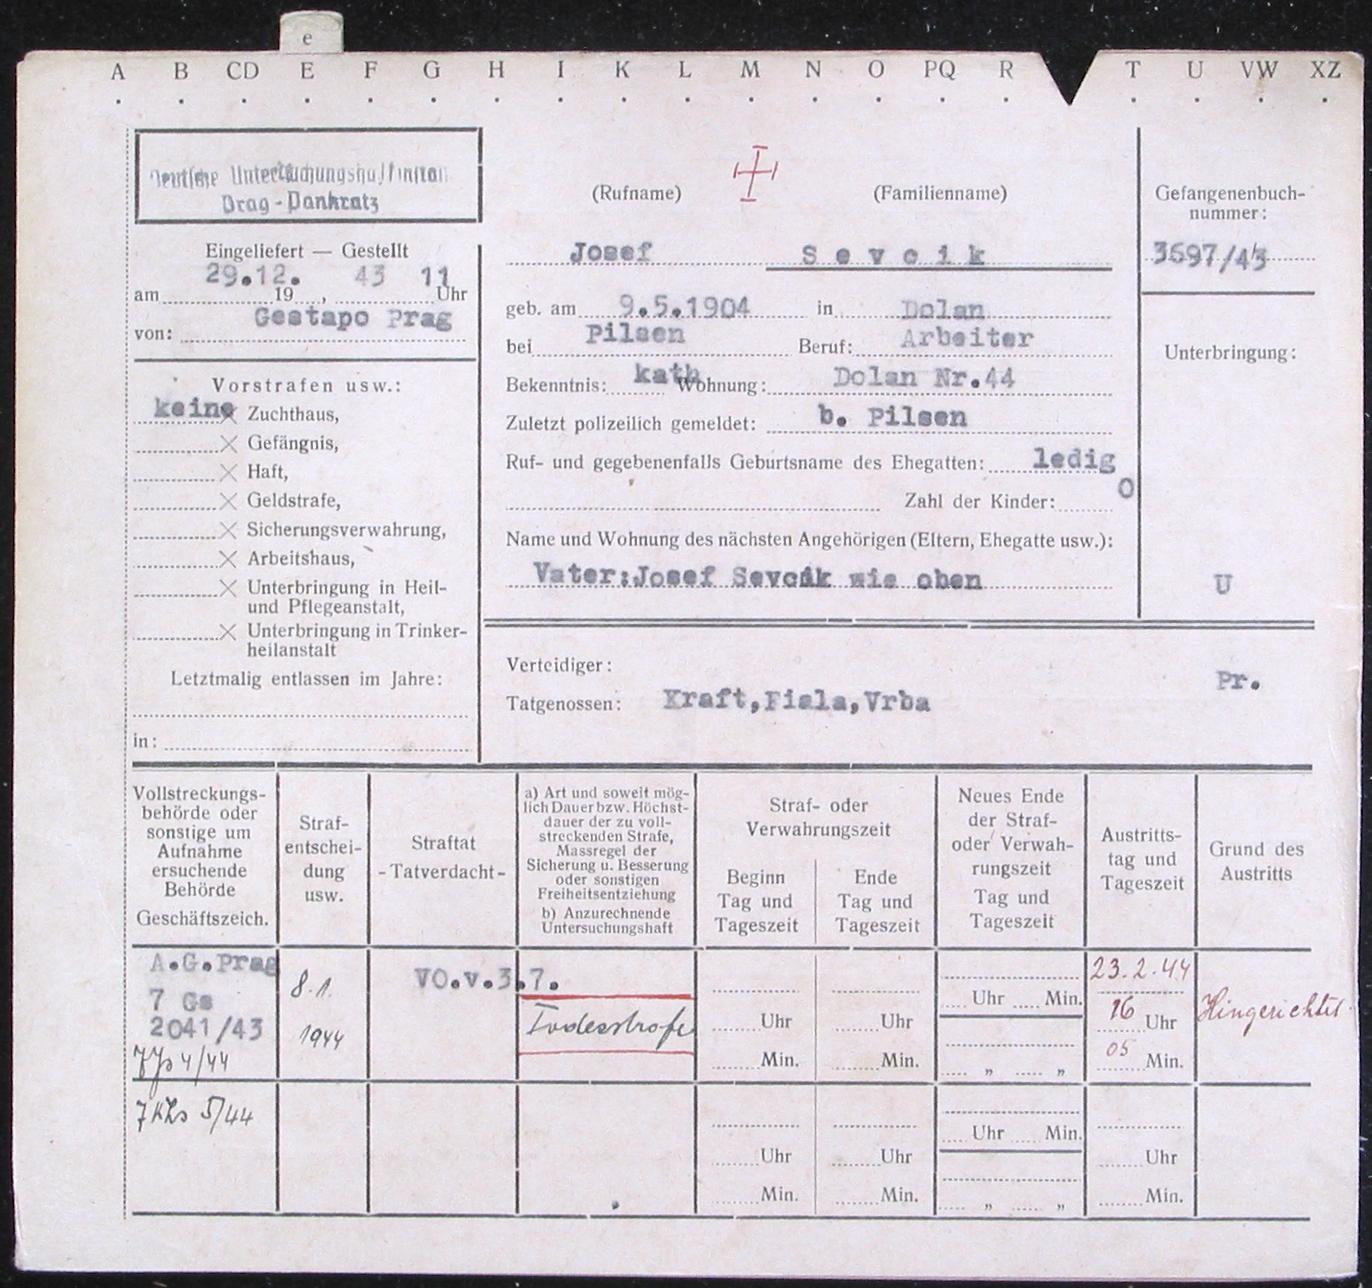 e
A B CD E F G H I K L M N O PQ R T U VW XZ
Deutsche Untersuchungshaftanstalt
Prag-Pankratz
Eingeliefert — Gestellt
29.12. 43 11
am 19 , Uhr
Gestapo Prag
von:
Vorstrafen usw.:
keine Zuchthaus,
× Gefängnis,
× Haft,
× Geldstrafe,
× Sicherungsverwahrung,
× Arbeitshaus,
× Unterbringung in Heil-
und Pflegeanstalt,
× Unterbringung in Trinker-
heilanstalt
Letztmalig entlassen im Jahre:
in:
(Rufname) (Familienname)
Josef Sevcik
geb. am 9.5.1904 in Dolan
bei Pilsen Beruf: Arbeiter
Bekenntnis: kath Wohnung: Dolan Nr.44
Zuletzt polizeilich gemeldet: b. Pilsen
Ruf- und gegebenenfalls Geburtsname des Ehegatten: ledig
Zahl der Kinder: 0
Name und Wohnung des nächsten Angehörigen (Eltern, Ehegatte usw.):
Vater:Josef Sevcik wie oben
Gefangenenbuch-
nummer:
3697/43
Unterbringung:
U
Pr.
Verteidiger:
Tatgenossen: Kraft,Fiala,Vrba
Vollstreckungs-
behörde oder
sonstige um
Aufnahme
ersuchende
Behörde
Geschäftszeich.
Straf-
entschei-
dung
usw.
Straftat
- Tatverdacht -
a) Art und soweit mög-
lich Dauer bzw. Höchst-
dauer der zu voll-
streckenden Strafe,
Massregel der
Sicherung u. Besserung
oder sonstigen
Freiheitsentziehung
b) Anzurechnende
Untersuchungshaft
Straf- oder
Verwahrungszeit
Beginn
Tag und
Tageszeit
Ende
Tag und
Tageszeit
Neues Ende
der Straf-
oder Verwah-
rungszeit
Tag und
Tageszeit
Austritts-
tag und
Tageszeit
Grund des
Austritts
A.G.Prag
7 Gs
2041/43
7 Js 4/44
8.1.
1944
VO.v.3.7.
Todesstrafe
Uhr
Min.
Uhr
Min.
Uhr Min.
„ „
23.2.44
16 Uhr
05 Min.
Hingerichtet.
7 KLs 5/44
Uhr
Min.
Uhr
Min.
Uhr Min.
„ „
Uhr
Min.